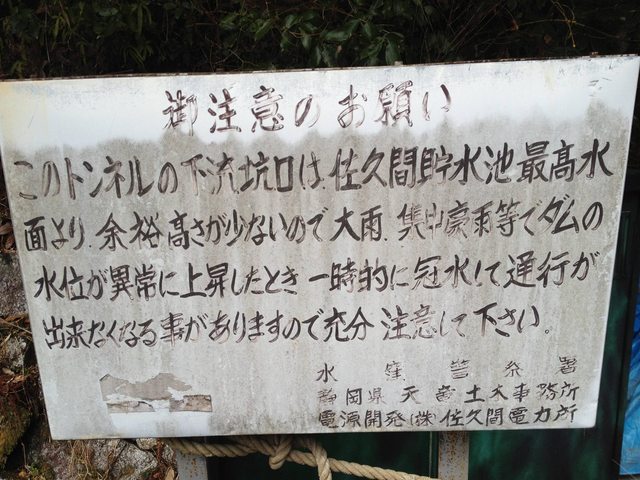 御注意のお願い
このトンネルの下流坑口は、佐久間貯水池最高水
面より、余裕高さが少ないので大雨、集中豪雨等でダムの
水位が異常に上昇したとき一時的に冠水して運行が
出来なくなる事がありますので充分注意して下さい。
水窪警察署
静岡県天竜土木事務所
電源開発(株)佐久間電力所